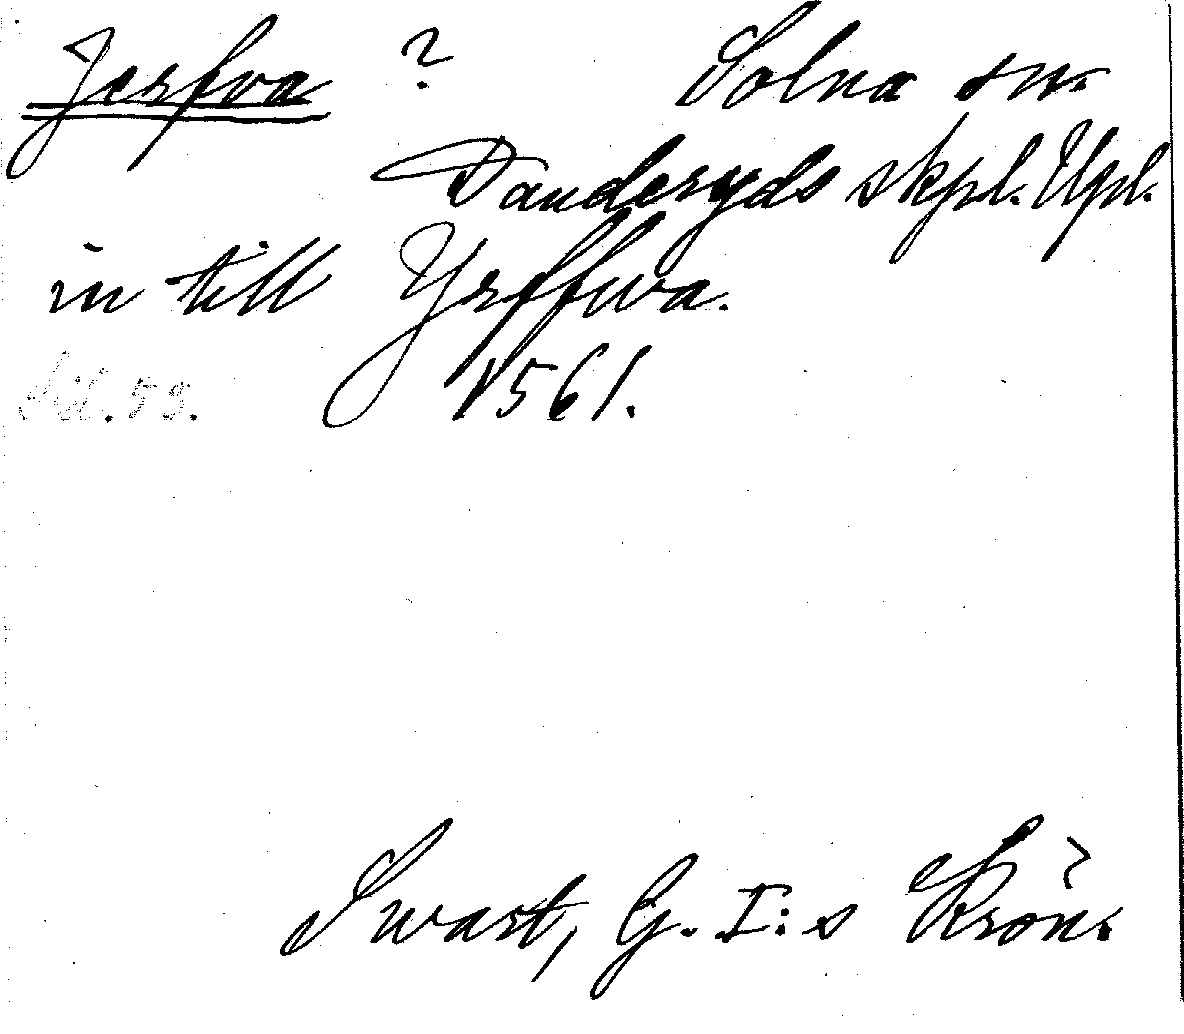 Jerfva ? Solna sn.
Danderyds skpl. Upl.
in till Yrffwa.
1561.
Sid. 53.
Swart, G. I:s Krön.